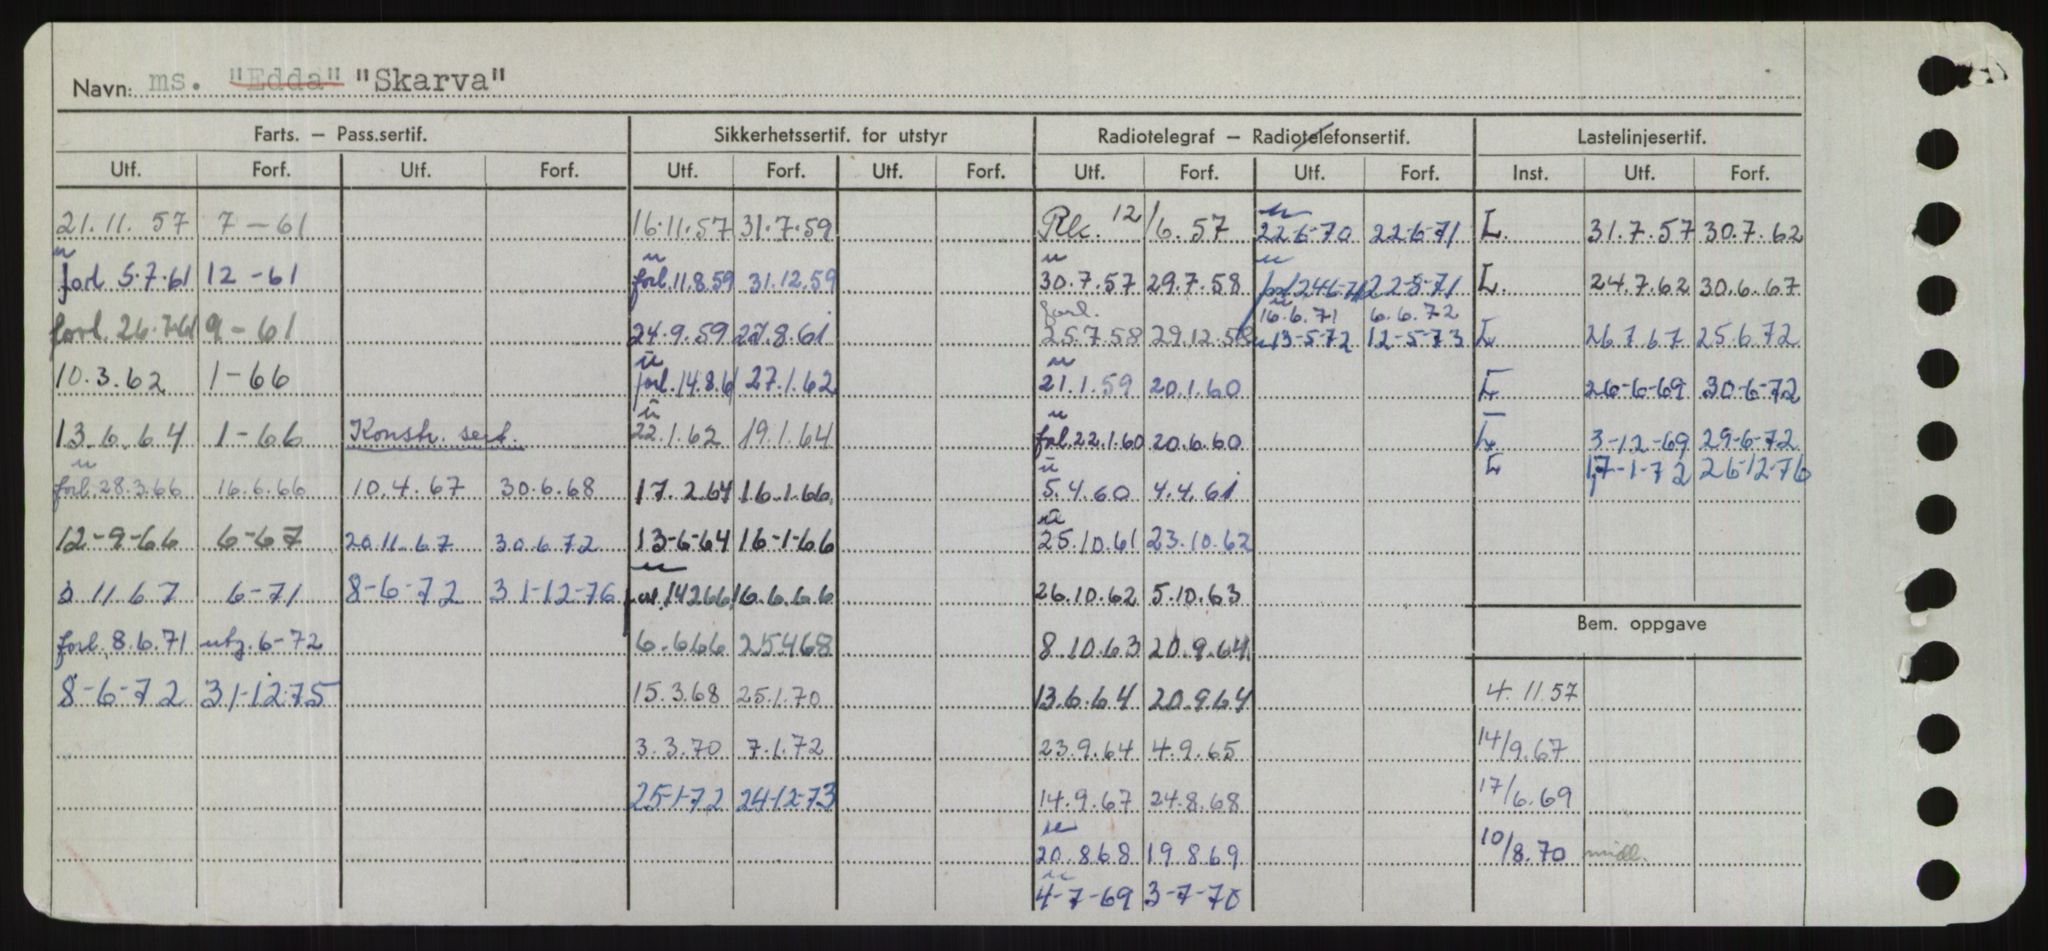 Navn: ms. "Edda" "Skarva"
Farts. — Pass.sertif. Sikkerhetssertif. for utstyr Radiotelegraf — Radiotelefonsertif. Lastelinjesertif.
Utf. Forf. Utf. Forf. Utf. Forf. Utf. Forf. Utf. Forf. Utf. Forf. Inst. Utf. Forf.
21.11.57 7-61 16.11.57 31.7.59 12/6.57 22-6-70 22-6-71 Ł. 31.7.57 30.7.62
forl. 5.7.61 12-61 forl. 11.8.59 31.12.59 30.7.57 29.7.58 22-8-71 Ł. 24.7.62 30.6.67
16.6.71 6.6.72
forl. 26.7.61 9-61 24.9.59 27.8.61 forl. 25.7.58 29.12.58 13-5-72 12-5-73 Ł 26.7.67 25.6.72
10.3.62 1-66 forl. 14.8.61 27.1.62 21.1.59 20.1.60 Ł 26-6-69 30-6-72
13.6.64 1-66 Konstr. sert. 22.1.62 19.1.64 forl. 22.1.60 20.6.60 Ł 3-12-69 29-6-72
Ł 17-1-72 26-12-76
forl. 28.3.66 16.6.66 10.4.67 30.6.68 17.2.64 16.1.66 5.4.60 4.4.61
12-9-66 6-67 20.11.67 30.6.72 13-6-64 16-1-66 25.10.61 23.10.62
3 11.67 6-71 8-6-72 31-12-76 forl. 14266 16.6.66 26.10.62 5.10.63
forl. 8.6.71 utg. 6-72 6.666 25468 8.10.63 20.9.64 Bem. oppgave
8-6-72 31-12-75 15.3.68 25.1.70 13.6.64 20.9.64 4.11.57
3.3.70 7.1.72 23.9.64 4.9.65 14/9.67
25-1-72 24-12-73 14.9.67 24.8.68 17/6.69
20.868 19.869 10/8.70 midl.
4-7-69 3-7-70